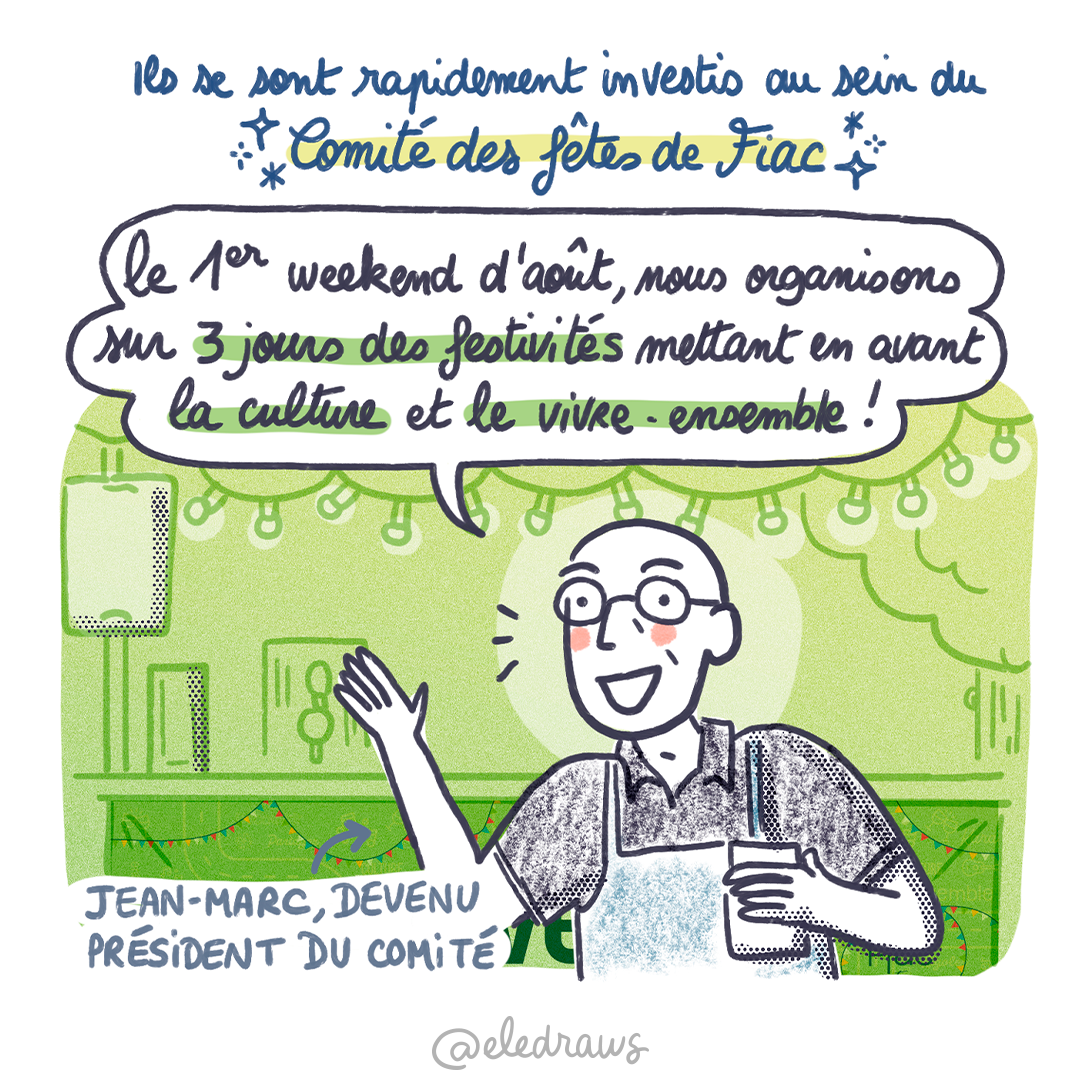 Ils se sont rapidement investis au sein du
Comité des fêtes de Fiac
le 1er weekend d'août, nous organisons
sur 3 jours des festivités mettant en avant
la culture et le vivre-ensemble !
JEAN-MARC, DEVENU
PRÉSIDENT DU COMITÉ
@eledraws